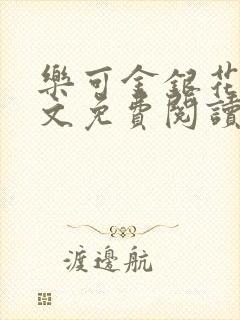 樂可金銀花
文免費閱讀
渡邊航